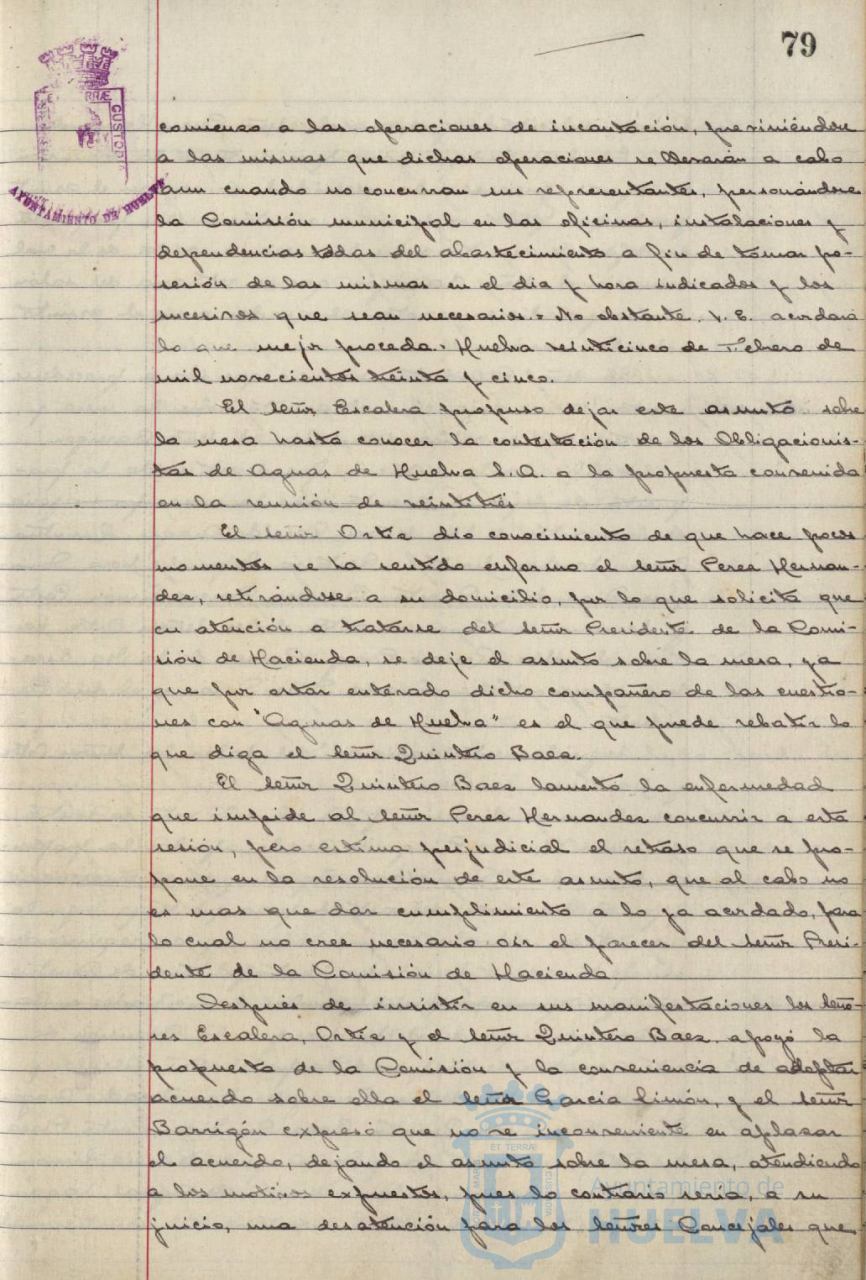 79
comienzo a las operaciones de incautación, previniéndose
a las mismas que dichas operaciones se llevarán a cabo
aun cuando no concurran sus representantes, personándose
la Comisión municipal en las oficinas, instalaciones y
dependencias todas del abastecimiento a fin de tomar po-
sesión de las mismas en el dia y hora indicados y los
sucesivos que sean necesarios.= No obstante V. E. acordará
lo que mejor proceda. Huelva veinticinco de Febrero de
mil novecientos treinta y cinco.
El señor Escalera propuso dejar este asunto sobre
la mesa hasta conocer la contestación de los Obligacionis-
tas de Aguas de Huelva S.A. a la propuesta convenida
en la reunión de veintitrés
El señor Ortiz dio conocimiento de que hace pocos
momentos se ha sentido enfermo el señor Perez Hernan-
dez, retirándose a su domicilio, por lo que solicita que
en atención a tratarse del señor Presidente de la Comi-
sión de Hacienda, se deje el asunto sobre la mesa, ya
que por estar enterado dicho compañero de las cuestio-
nes con "Aguas de Huelva" es el que puede rebatir lo
que diga el señor Quintero Baez.
El señor Quintero Baez lamentó la enfermedad
que impide al señor Perez Hernandez concurrir a esta
sesión, pero estima perjudicial el retraso que se pro-
pone en la resolución de este asunto, que al cabo no
es mas que dar cumplimiento a lo ya acordado, para
lo cual no cree necesario oir el parecer del señor Presi-
dente de la Comisión de Hacienda
Después de insistir en sus manifestaciones los seño-
res Escalera, Ortiz y el señor Quintero Baez, apoyó la
propuesta de la Comisión y la conveniencia de adoptar
acuerdo sobre ella el señor García Limón, y el señor
Barrigón expresó que no ve inconveniente en aplazar
el acuerdo, dejando el asunto sobre la mesa, atendiendo
a los motivos expuestos, pues lo contrario seria, a su
juicio, una desatención para los señores Concejales que
CUSTODI
AYUNTAMIENTO DE HUELVA
ET TERRÆ
Ayuntamiento de
HUELVA